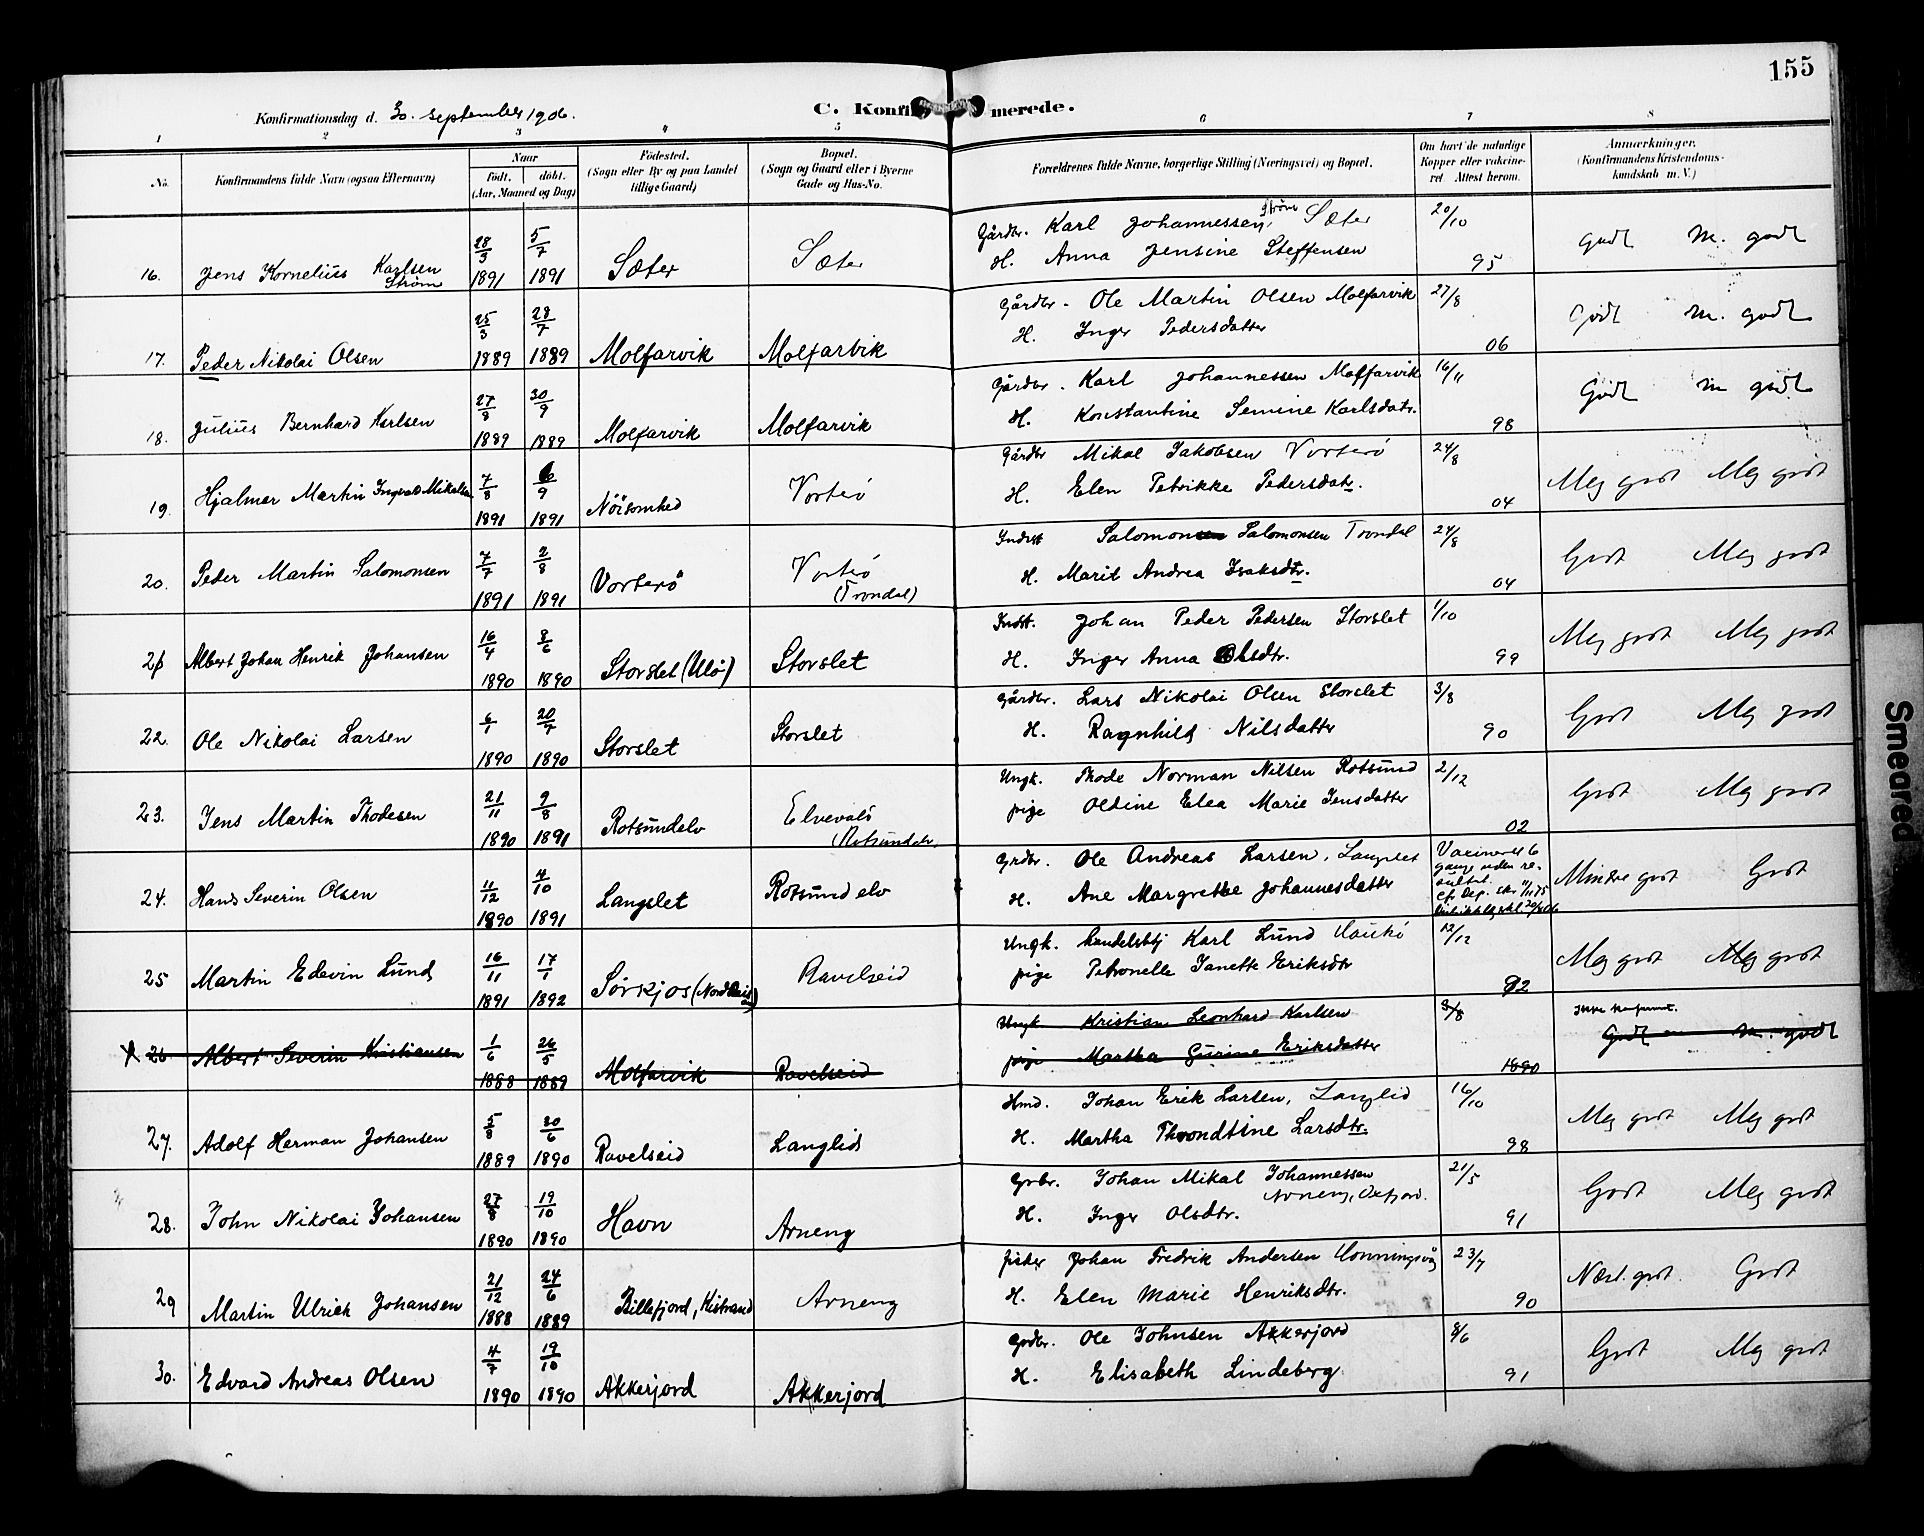 155
Konfirmationsdag d. 30. september 1906.
C. Konfirmerede.
1 2 3 4 5 6 7 8
No.
Konfirmandens fulde Navn (ogsaa Efternavn)
Naar
født. døbt.
(Aar, Maaned og Dag)
Födested.
(Sogn eller By og paa Landet
tillige Gaard)
Bopæl.
(Sogn og Gaard eller i Byerne
Gade og Hus-No.
Forældrenes fulde Navne, borgerlige Stilling (Næringsvei) og Bopæl.
Om havt de naturlige
Kopper eller vakcine-
ret Attest herom.
Anmærkninger.
(Konfirmandens Kristendoms-
kundskab m. V.)
16. Jens Kornelius Karlsen Strøm 28/3 1891 5/7 1891 Sæter Sæter
Gårdbr. Karl Johannessen, Strøm Sæter 20/10
H. Anna Jensine Steffensen 95
Godt M. godt
17. Peder Nikolai Olsen 25/3 1889 28/7 1889 Molfarvik Molfarvik
Gårdbr. Ole Martin Olsen Molfarvik 27/8
H. Inger Pedersdatter 06
Godt M. godt
18. Julius Bernhard Karlsen 27/8 1889 30/9 1889 Molfarvik Molfarvik
Gårdbr. Karl Johannessen Molfarvik 16/11
H. Konstantine Semine Karlsdatr. 98
Godt M godt
19. Hjalmer Martin Ingvald Mikalsen 7/8 1891 6/9 1891 Nöisomhed Vorterö
Gårdbr Mikal Jakobsen Vorterö 24/8
H. Elen Petrikke Pedersdatr. 04
Meg godt Meg godt
20. Peder Martin Salomonsen 7/7 1891 2/8 1891 Vorterö Vorterö
(Trondal)
Indst Salomon Salomonsen Trondal 24/8
H. Marit Andrea Isaksdtr. 04
Godt Meg godt
21 Albert Johan Henrik Johansen 16/4 1890 8/6 1890 Storslet (Ulö) Storslet
Indst. Johan Peder Pedersen Storslet 1/10
H. Inger Anna Olsdtr. 99
Meg godt Meg godt
22. Ole Nikolai Larsen 6/1 1890 20/7 1890 Storslet Storslet
Gårdbr. Lars Nikolai Olsen Storslet 3/8
H. Ragnhild Nilsdatter 90
Godt Meg godt
23. Jens Martin Thodesen 21/11 1890 9/8 1891 Rotsundelv Elvevold
(Rotsundelv.
Ungk. Thode Norman Nilsen Rotsund 2/12
pige Oldine Elea Marie Jensdatter 02
Godt Meg godt
24. Hans Severin Olsen 11/12 1890 4/10 1891 Langslet Rotsundelv
Grdbr. Ole Andreas Larsen, Langslet
H. Ane Margrethe Johannesdatter
Vaccineret 6
gange uden re-
sultat.
Mindre godt Godt
25 Martin Edevin Lund 16/11 1891 17/1 1892 Sörkjos (Nord Reisa) Ravelseid
Ungk. handelsbtj Karl Lund 12/12
pige Petronelle Janette Eriksdtr 92
Meg godt Meg godt
X 26 Albert Severin Kristiansen 1/6 1888 26/5 1889 Molfarvik Ravelseid
Ungk Kristian Leonhard Karlsen 3/8
pige Martha Gurine Eriksdatter 1890
Ikke konfirmert.
Godt M. godt
27. Adolf Herman Johansen 5/8 1889 30/6 1890 Ravelseid Langlid
Hmd. Johan Erik Larsen, Langlid 16/10
H. Martha Throndtine Larsdtr. 98
Meg godt Meg godt
28. John Nikolai Johansen 27/8 1890 19/10 1890 Havn Arneng
Grbr. Johan Mikal Johannessen 21/5
Arneng, Oxfjord.
H. Inger Olsdtr. 91
Godt Meg godt
29 Martin Ulrick Johansen 21/12 1888 24/6 1889 Billefjord, Kistrand Arneng
fisker Johan Fredrik Andersen Honningsvåg 23/7
H. Elen Marie Henriksdtr. 90
Næst. godt. Godt
30. Edvard Andreas Olsen 4/7 1890 19/10 1890 Akkerjord Akkerjord
Grdbr. Ole Johnsen Akkerjord 8/6
H. Elisabeth Lindeberg 91
Godt Meg godt
Smeared